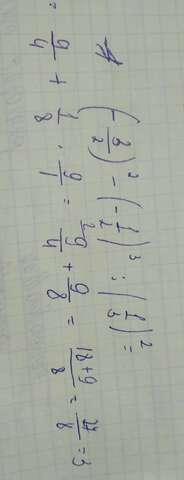 (-3/2)² - (-1/2)³ : (1/3)² =
= 9/4 + 1/8 · 9/1 = ²9/4 + 9/8 = 18+9/8 = 24/8 = 3